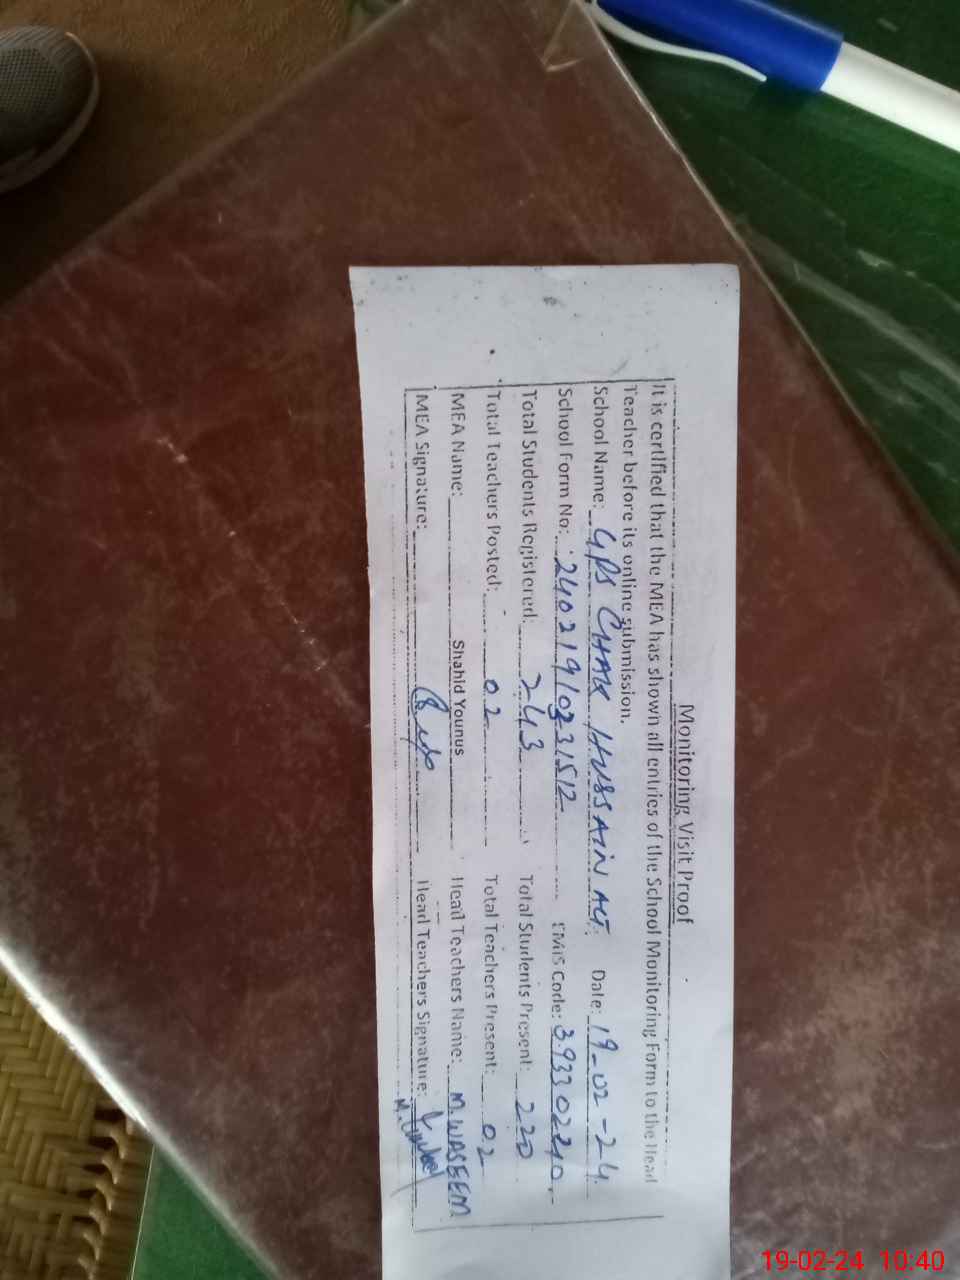 Monitoring Visit Proof
It is certified that the MEA has shown all entries of the School Monitoring Form to the Head
Teacher before its online submission.
School Name: GPS CHAK HUSSAIN ACT. Date: 19-02-24.
School Form No: 24021910231512 EMIS Code: 39330240
Total Students Registered: 243 Total Students Present: 220
Total Teachers Posted: 02 Total Teachers Present: 02
MEA Name: Shahid Younus Head Teachers Name: M. WASEEM
MEA Signature: Head Teachers Signature:
19-02-24 10:40